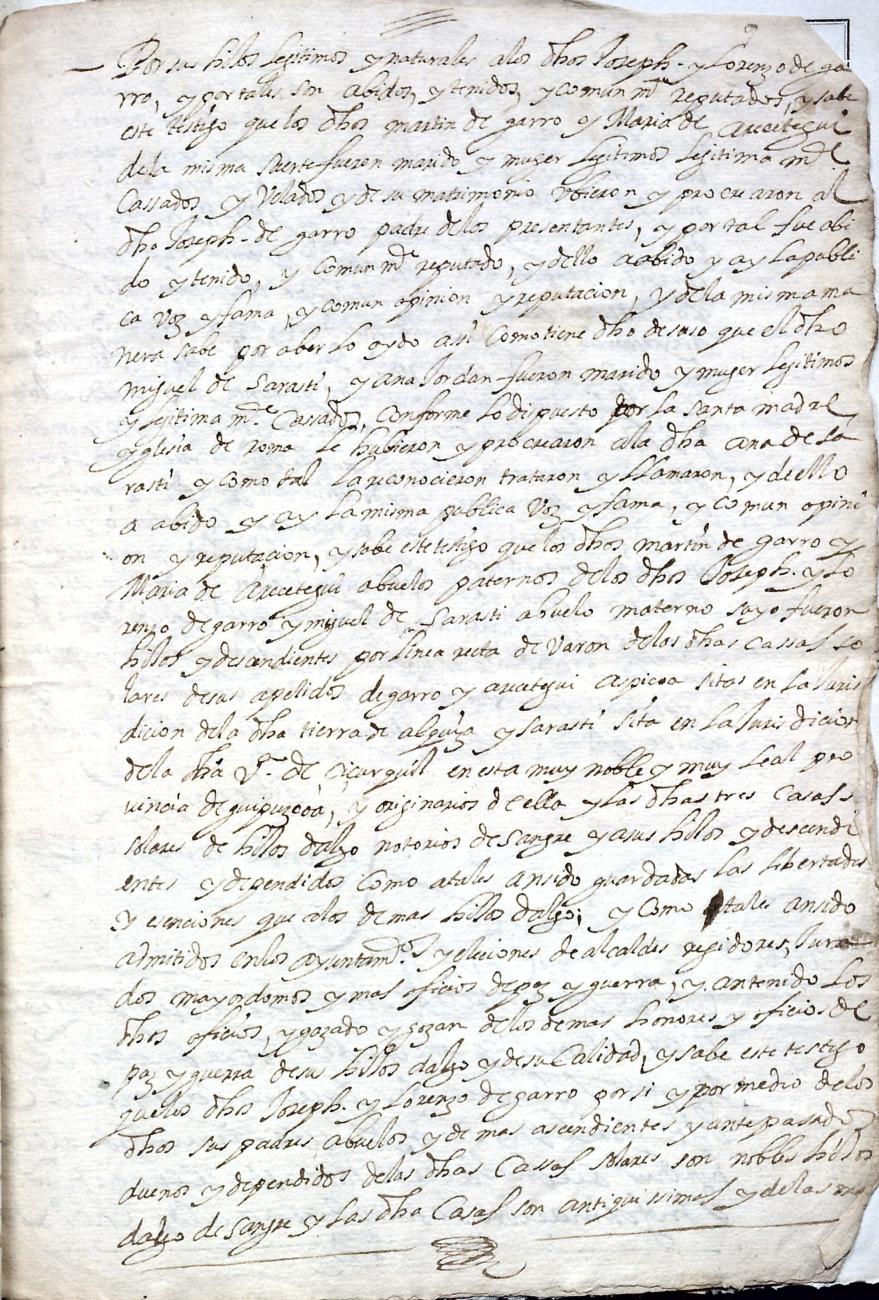 Por sus hilos legitimos y naturales alos dhos Joseph. y Lorenzo de ga
rro, y por tales son abidos, y tenidos, y comun mte reputados, y sabe
este testigo que los dhos martin de garro y Maria de arecetegui
dela misma suerte fueron marido y muger legitimos legitima mte
Cassados y Velados y de su matrimonio Vbieron y procrearon al
dho Joseph. de garro padre delos presentantes, y por tal fue abi
do y tenido, y comun mte reputado, y dello a abido y ay la publi
ca Voz y fama, y comun opinion y reputacion, y de la misma ma
nera sabe por aber lo oydo assi como tiene dho desuso que el dho
miguel de Sarasti, y ana Jordan fueron marido y muger legitimos
y legitima mte Cassados, conforme lo dispuesto por la santa madre
yglesia de roma le hubieron y procrearon ala dha ana de sa
rasti y como tal la reconocieron trataron y llamaron, y de ello
a abido y ay la misma publica Voz y fama, y comun opini
on y reputacion, y sabe este testigo que los dhos martin de garro y
Maria de arecetegui abuelos paternos de los dhos Joseph. y Lo
renzo de garro y miguel de Sarasti abuelo materno suyo fueron
hilos y descendientes por linea recta de varon delas dhas cassas so
lares desus apelidos de garro y arecetegui aspicoa sitas en la Juris
dicion dela dha tierra de alquiza y sarasti sita en la Juris dicion
dela dha Va. de cicurquil en esta muy noble y muy leal pro
vincia de guipuzcoa, y originarios de ella y las dhas tres casas
solares de hilos dalgo notorios de sangre y asus hilos y descendi
entes y dependidos como atales ansido guardadas las libertades
y esenciones que alos demas hilos dalgo; y como atales ansido
admitidos en los ayuntamtos y elecciones de alcaldes regidores, Jura
dos mayordomos y mas oficios de paz y guerra, y antenido los
dhos oficios, y gozado y gozan delos demas honores y oficios de
paz y guerra desus hilos dalgo y de su Calidad, y sabe este testigo
quelos dhos Joseph. y Lorenzo de garro por si y por medio delos
dhos sus padres abuelos y demas ascendientes y antepasados
duenos y dependidos delas dhas Cassas solares son nobles hilos
dalgo de sangre y las dha Casas son antiquissimas y delas